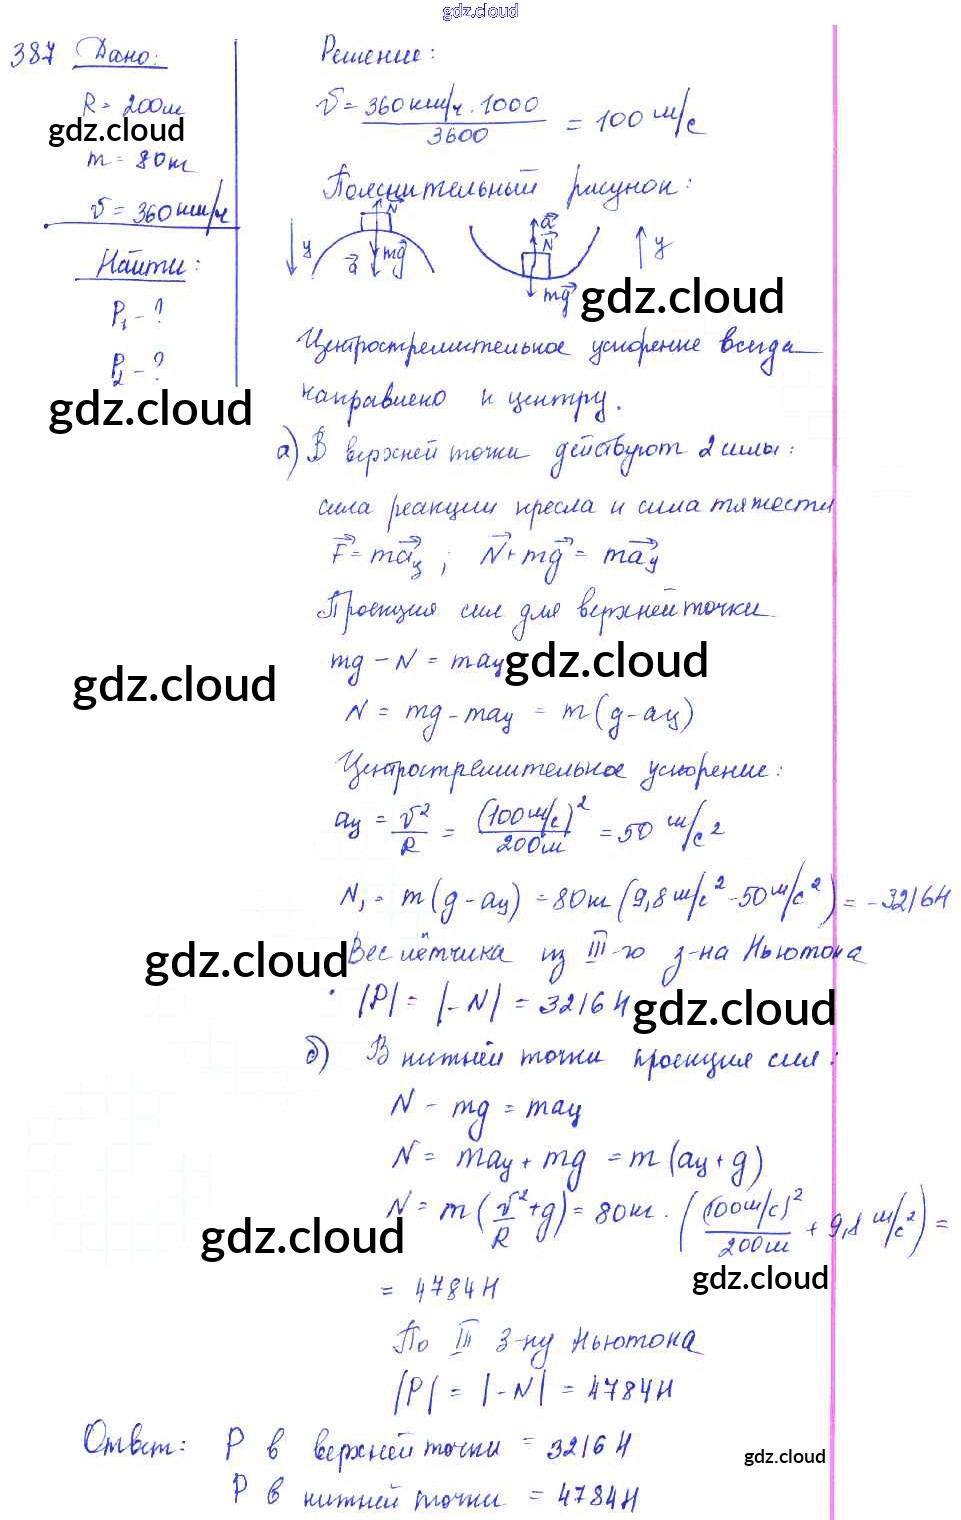 gdz.cloud
387 Дано:
R = 200м
gdz.cloud
m = 80кг
v = 360км/ч
Найти:
P₁ - ?
P₂ - ?
gdz.cloud
Решение:
v = 360км/ч · 1000 / 3600 = 100 м/с
Пояснительный рисунок:
y a N mg
a N mg y
gdz.cloud
Центростремительное ускорение всегда
направлено к центру.
а) В верхней точки действуют 2 силы:
сила реакции кресла и сила тяжести
F = maц ; N + mg = maц
Проекция сил для верхней точки
mg - N = maц
gdz.cloud
gdz.cloud
N = mg - maц = m(g - aц)
Центростремительное ускорение:
aц = v²/R = (100м/с)²/200м = 50 м/с²
N₁ = m(g - aц) = 80кг(9,8м/с² - 50м/с²) = -3216Н
Вес лётчика из III-го з-на Ньютона
gdz.cloud
|P| = |-N| = 3216Н
gdz.cloud
б) В нижней точки проекция сил:
N - mg = maц
N = maц + mg = m(aц + g)
N = m(v²/R + g) = 80кг · ((100м/с)²/200м + 9,8м/с²) =
gdz.cloud
= 4784Н
gdz.cloud
По III з-ну Ньютона
|P| = |-N| = 4784Н
Ответ: P в верхней точки = 3216Н
gdz.cloud
P в нижней точки = 4784Н